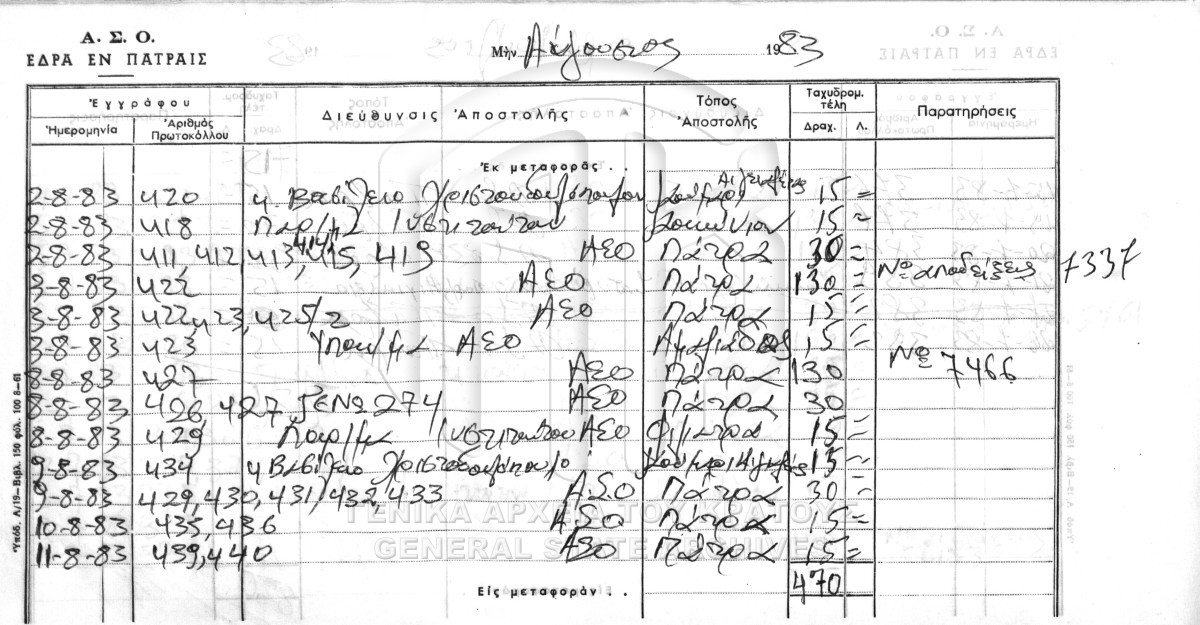 Α. Σ. Ο.
ΕΔΡΑ ΕΝ ΠΑΤΡΑΙΣ
Μὴν Αύγουστος 1983
Ἐγγράφου Διεύθυνσις Ἀποστολῆς Τόπος Ἀποστολῆς Ταχυδρομ. τέλη Παρατηρήσεις
Ἡμερομηνία Ἀριθμὸς Πρωτοκόλλου Δραχ. Λ.
Ἐκ μεταφορᾶς . .
2-8-83 420 κ. Βασίλειο 15 =
2-8-83 418 Παρ/μα Ινστιτούτου 15 =
2-8-83 411, 412, 413, 414, 415, 419 ΑΣΟ Πάτρα 30 =
3-8-83 422 ΑΣΟ Πάτρα 130 = Νο αποδείξεως 7337
3-8-83 422, 423, 425/2 ΑΣΟ Πάτρα 15 =
3-8-83 423 Υποκ/μα ΑΣΟ Αμαλιάδος 15 =
8-8-83 427 ΑΣΟ Πάτρα 130 = Νο 7466
8-8-83 426, 427 274 ΑΣΟ Πάτρα 30
8-8-83 429 Παρ/μα Ινστιτούτου ΑΣΟ 15 =
9-8-83 434 κ Βασίλειο 15 =
9-8-83 429, 430, 431, 432, 433 Α.Σ.Ο Πάτρα 30 =
10-8-83 435, 436 Α.Σ.Ο Πάτρα 15 =
11-8-83 439, 440 ΑΣΟ Πάτρα 15 =
Εἰς μεταφοράν . . 470
Ὑπόδ. Α/19—Βιβλ. 150 φύλ. 100 8—61
ΓΕΝΙΚΑ ΑΡΧΕΙΑ ΤΟΥ ΚΡΑΤΟΥΣ
GENERAL STATE ARCHIVES